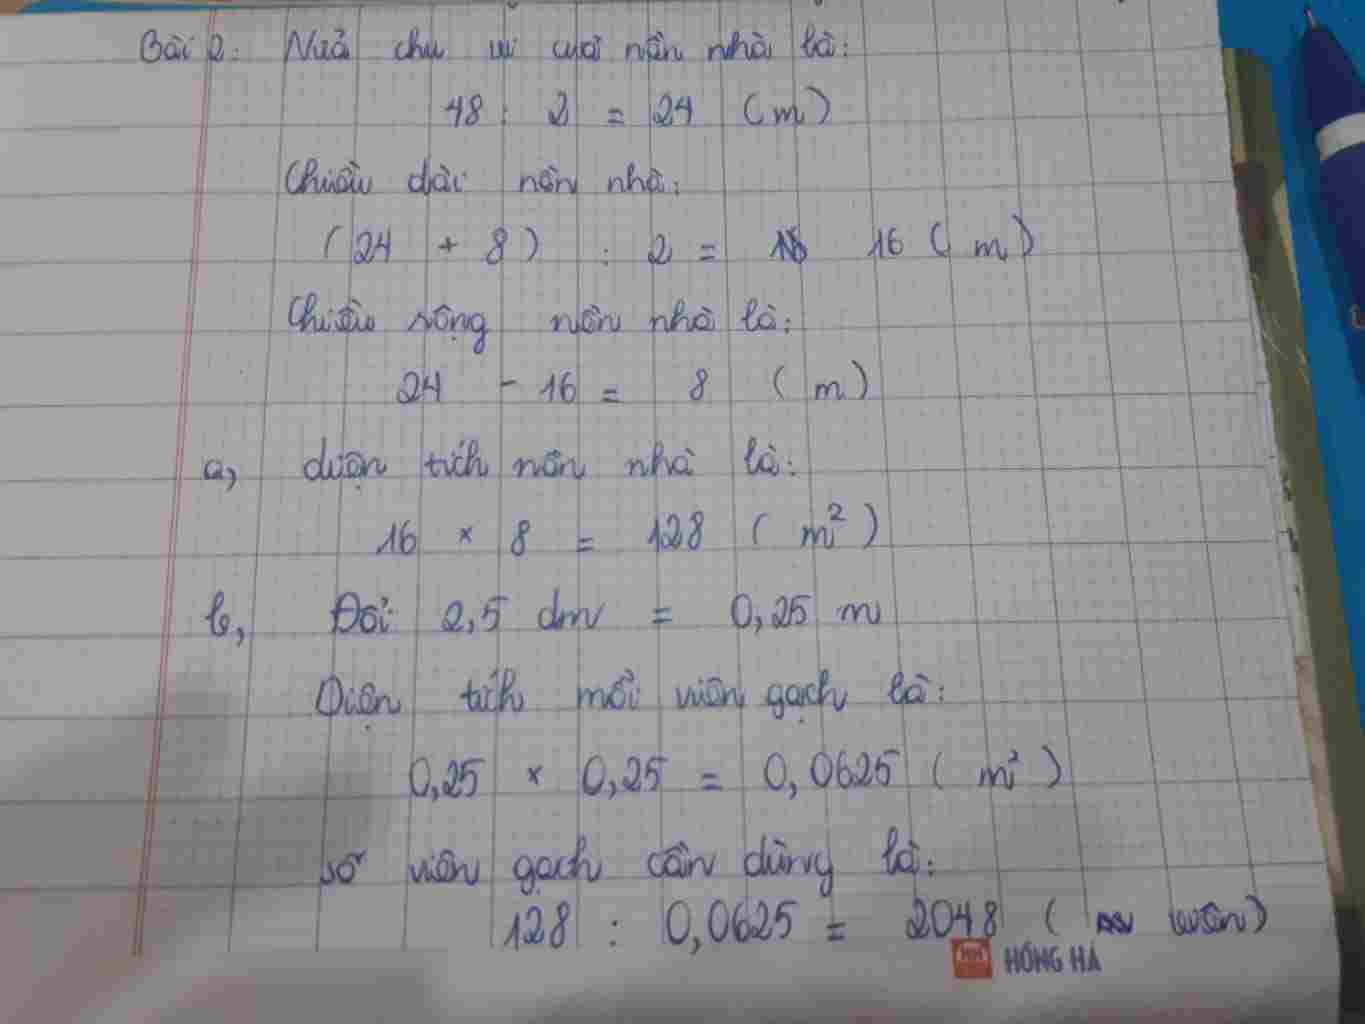 Bài 2: Nửa chu vi của nền nhà là:
48 : 2 = 24 (m)
Chiều dài nền nhà:
(24 + 8) : 2 = 16 (m)
Chiều rộng nền nhà là:
24 - 16 = 8 (m)
a, diện tích nền nhà là:
16 × 8 = 128 (m²)
b, Đổi: 2,5 dm = 0,25 m
Diện tích mỗi viên gạch là:
0,25 × 0,25 = 0,0625 (m²)
số viên gạch cần dùng là:
128 : 0,0625 = 2048 (viên)
HỒNG HÀ